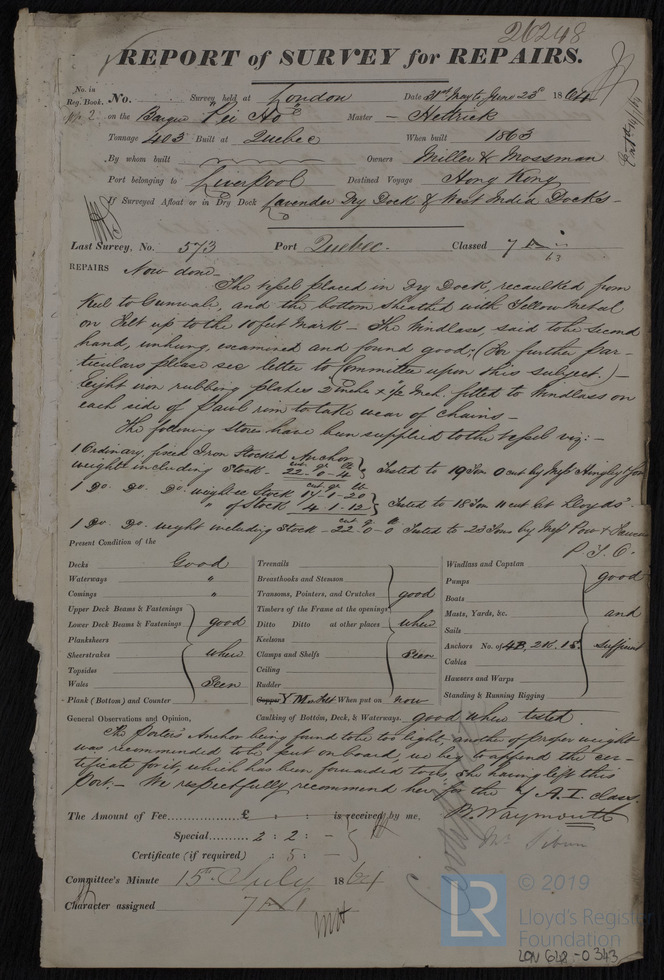 26248
REPORT of SURVEY for REPAIRS.
No. in Reg. Book. No. Survey held at London Date 31st May to June 23d 1864
on the Barque Pei Ho Master — Hettrick
Tonnage 403 Built at Quebec When built 1863
By whom built Owners Miller & Mossman
Port belonging to Liverpool Destined Voyage Hong Kong
If Surveyed Afloat or in Dry Dock Lavender Dry Dock & West India Docks —
Last Survey, No. 573 Port Quebec. Classed 7 A 1 63
REPAIRS Now done —
The vessel placed in Dry Dock, recaulked from
Keel to Gunwale, and the bottom sheathed with Yellow Metal
on Felt up to the 10 feet mark — The Windlass, said to be second
hand, unhung, examined and found good; (For further par-
ticulars please see letter to Committee upon this subject.) —
Eight iron rubbing plates 2 inches x 1/2 inch fitted to Windlass on
each side of Paul rim to take wear of chains —
The following Stores have been supplied to the vessel viz: —
1 Ordinary fixed Iron Stocked Anchor
weight including Stock — cwt. qr. lb 22 - 0 - 4 } Tested to 19 Ton 0 cwt by Messrs
1 Do. Do. Do. weight ex Stock cwt. qr. lb 17 - 1 - 20
" of Stock 4 . 1 . 12 } Tested to 18 Ton 11 cwt at Lloyds'
1 Do. Do. weight including Stock — cwt q lb 22 - 0 - 0 Tested to 23 Tons by Messrs Pow &
P. T. O.
Present Condition of the
Decks Good
Waterways "
Comings "
Upper Deck Beams & Fastenings
Lower Deck Beams & Fastenings good
Planksheers
Sheerstrakes when
Topsides
Wales Seen
Plank (Bottom) and Counter
Treenails
Breasthooks and Stemson
Transoms, Pointers, and Crutches good
Timbers of the Frame at the openings
Ditto Ditto at other places when
Keelsons
Clamps and Shelfs Seen
Ceiling
Rudder
Copper Y M on Felt When put on now
Caulking of Bottom, Deck, & Waterways. good when tested
Windlass and Capstan
Pumps good
Boats
Masts, Yards, &c. and
Sails
Anchors No. of 4B, 2K, 1S. sufficient
Cables
Hausers and Warps
Standing & Running Rigging
General Observations and Opinion,
The Porters Anchor being found to be too light, another of proper weight
was recommended to be put on board, we beg to append the cer-
tificate for it, which has been forwarded to us, she having left this
Port. — We respectfully recommend her for the 7 A.1. class.
The Amount of Fee £ : : is received by me, B. Waymouth
Special 2 : 2 : —
Certificate (if required) : 5 : —
Committee's Minute 15th July 1864
Character assigned 7 A 1
© 2019
LR
Lloyd's Register
Foundation
LON 642 - 0343